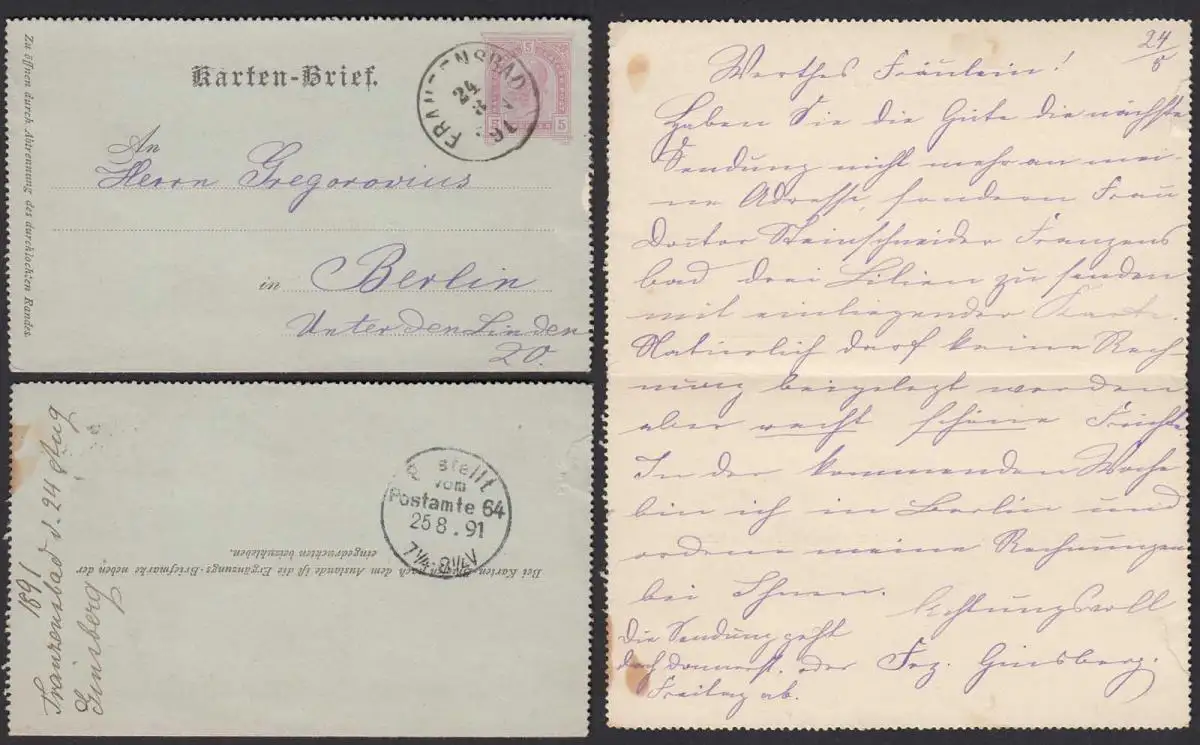 Karten-Brief.
Zu öffnen durch Abtrennung des durchlochten Randes.
5
5 5
FRANZENSBAD
24
8
91
An
Herrn Gregorovius
in Berlin
Unter den Linden
20.
1891
Franzensbad d. 24 Aug
Ginsberg
Bestellt
vom
Postamte 64
25 8. 91
7¼-8½V
Bei Karten-Briefen nach dem Auslande ist die Ergänzungs-Briefmarke neben der
eingedruckten beizukleben.
24/8
Werthes Fräulein!
Haben Sie die Güte die nächste
Sendung nicht mehr an mei-
ne Adresse, sondern Frau
Doctor Steinschneider Franzens
bad drei Lilien zu senden
mit einliegender Karte.
Natürlich darf keine Rech-
nung beigelegt werden
aber recht schöne Früchte
In der kommenden Woche
bin ich in Berlin und
ordene meine Rechnungen
bei Ihnen.
Achtungsvoll
Frz. Ginsberg.
Die Sendung geht
doch Donnerst. oder
Freitag ab.